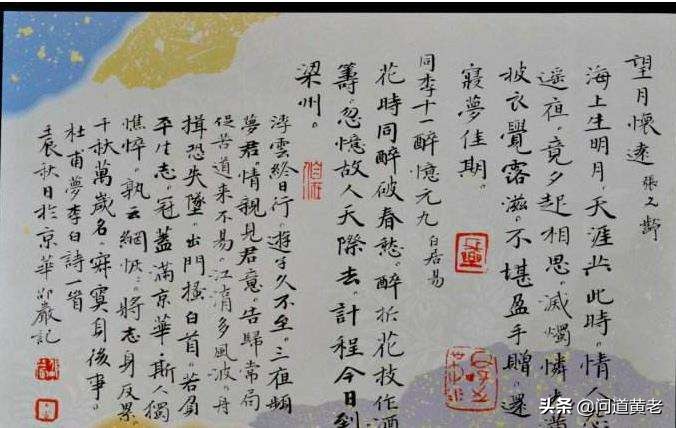 望月懷遠 張九齡
海上生明月。天涯共此時。情人怨
遥夜。竟夕起相思。滅燭憐光滿
披衣覺露滋。不堪盈手贈。還
寢夢佳期。
同李十一醉憶元九 白居易
花時同醉破春愁。醉折花枝作酒
籌。忽憶故人天際去。計程今日到
梁州。
浮雲終日行。遊子久不至。三夜頻
夢君。情親見君意。告歸常局
促。苦道来不易。江湖多風波。舟
楫恐失墜。出門搔白首。若負
平生志。冠蓋滿京華。斯人獨
憔悴。孰云網恢。將志身反累。
千秋萬歲名。寂寞身後事。
杜甫夢李白詩一首
壬辰秋日於京華邵巖記
头条 @问道黄老